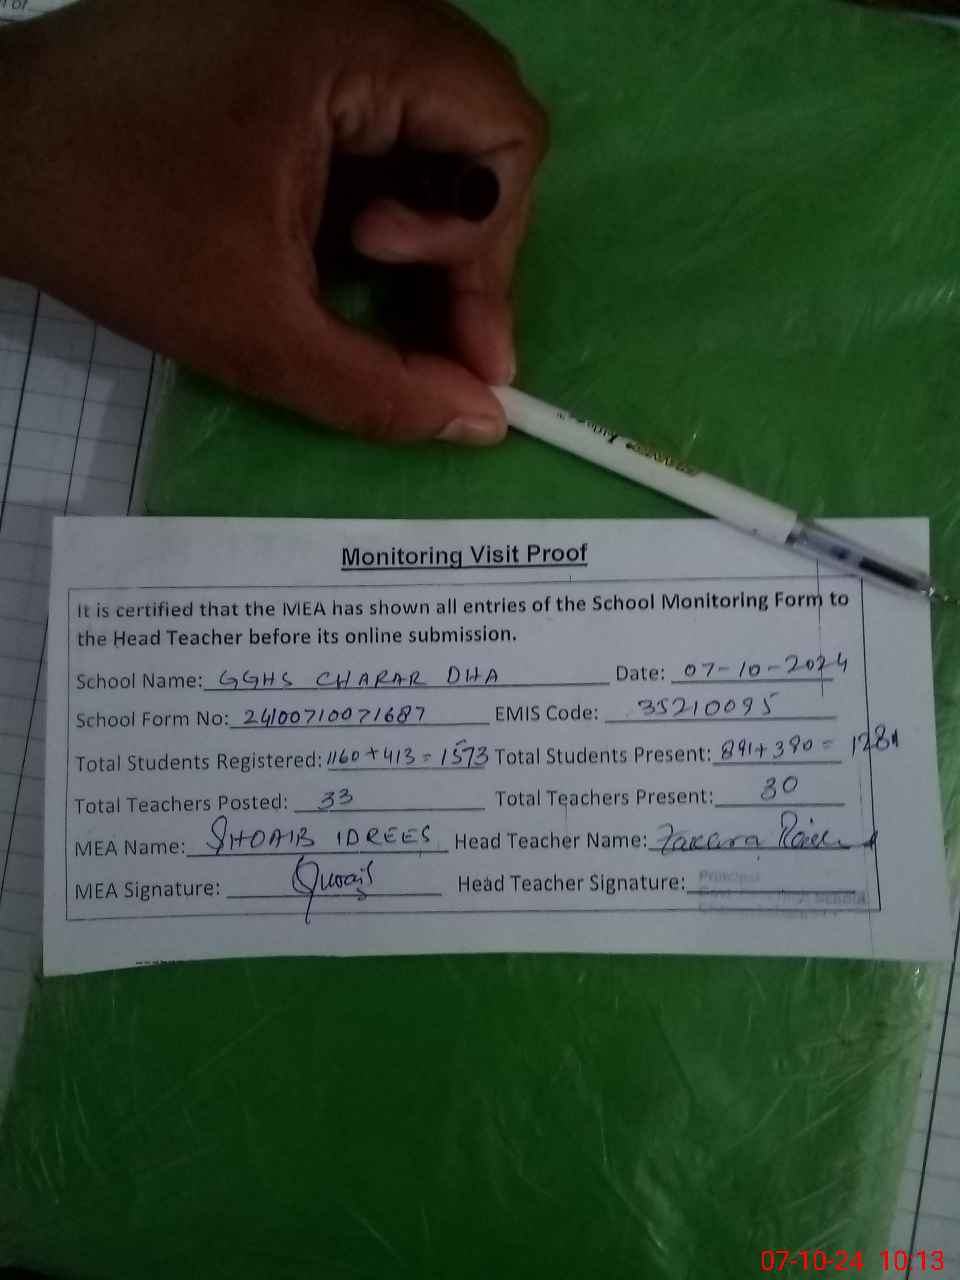 Monitoring Visit Proof
It is certified that the MEA has shown all entries of the School Monitoring Form to
the Head Teacher before its online submission.
School Name: GGHS CHARAR DHA Date: 07-10-2024
School Form No: 24100710071687 EMIS Code: 35210095
Total Students Registered: 1160+413=1573 Total Students Present: 891+390= 1281
Total Teachers Posted: 33 Total Teachers Present: 30
MEA Name: SHOAIB IDREES Head Teacher Name:
MEA Signature: Head Teacher Signature:
Principal
07-10-24 10:13